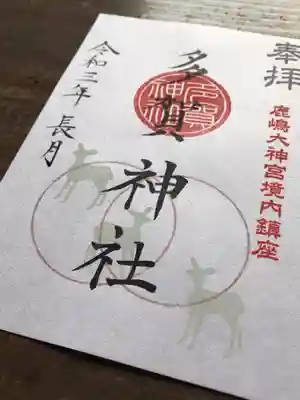 奉拝
鹿嶋大神宮境内鎮座
多賀神社
令和三年 長月